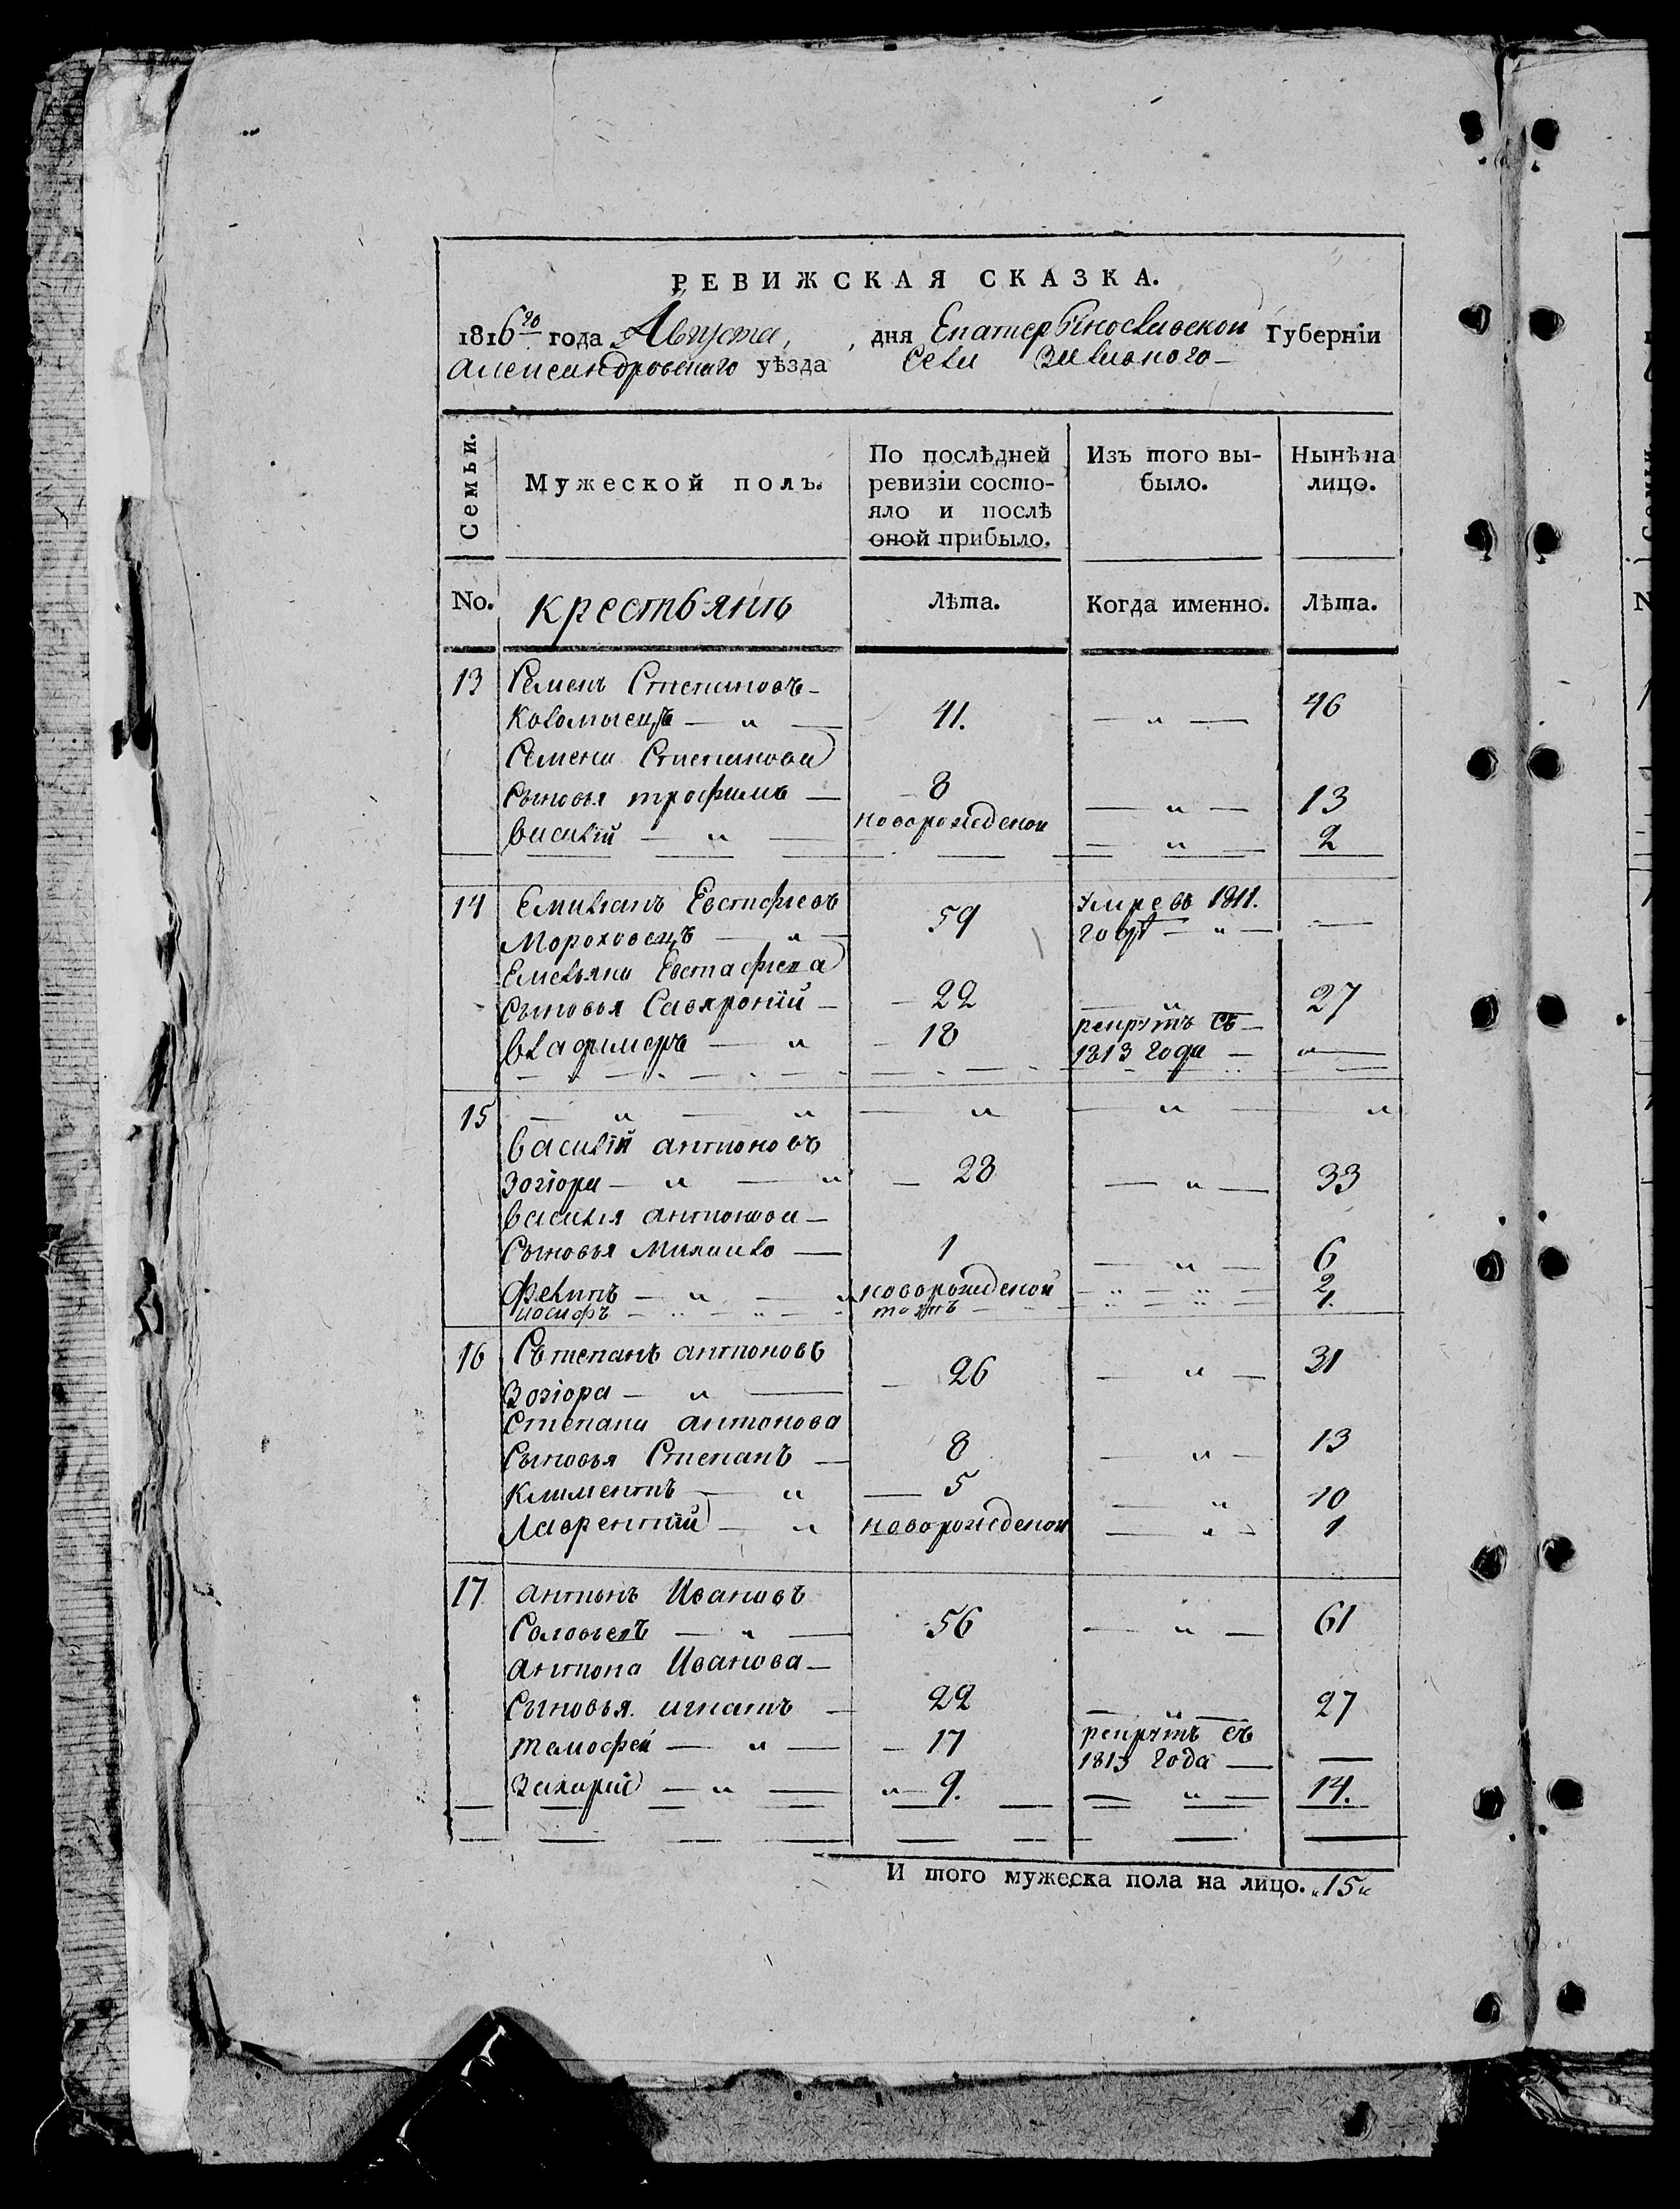 РЕВИЖСКАЯ СКАЗКА.
1816го года Августа, дня Екатеринославской Губернїи
Александровскаго уѣзда Села
Семьи.
Мужеской полъ.
По послѣдней ревизїи состо-
яло и послѣ
оной прибыло.
Изъ того вы-
было.
Нынѣ на
лицо.
No.
крестьянъ
Лѣта.
Когда именно.
Лѣта.
13 Семенъ Степановъ
Коломыецъ — „ — 41. — „ — 46
Семена Степанова
Сыновья трофимъ — 8 — „ — 13
василїй — „ — новорожденой — „ — 2
14 Емилианъ Евстафиевъ
Мороховецъ — „ — 59 Умре въ 1811. годѣ — „ — —
Емельяна Евстафиева
Сыновья Савяронїй — 22 — „ — 27
владимеръ — „ — 18 рекрутъ съ 1813 года — „ —
15 — „ — „ — „ — „ — „
василїй антоновъ
Зогїора — „ — „ — 28 — „ — 33
василия антонова —
Сыновья Михаило — 1 — „ — 6
Филипъ — „ — „ новорожденой — „ — „ — 2
иосифъ — „ — „ — тожъ — „ — „ — 1.
16 Сътепанъ антоновъ
Зогїора — „ — 26 — „ — 31
Степана антонова
Сыновья Степанъ — 8 — „ — 13
Климентъ — „ — 5 — „ 10
Лаврентїй — „ новорожденой — „ — 1
17 антонъ Ивановъ
Соловьевъ — „ — 56 — „ — 61
антона Иванова —
Сыновья. игнатъ — 22 — „ — 27
тамофей — „ — 17 рекрутъ съ 1813 года — —
Захарий — „ — „ — 9. — „ — 14.
И того мужеска пола на лицо. „15„